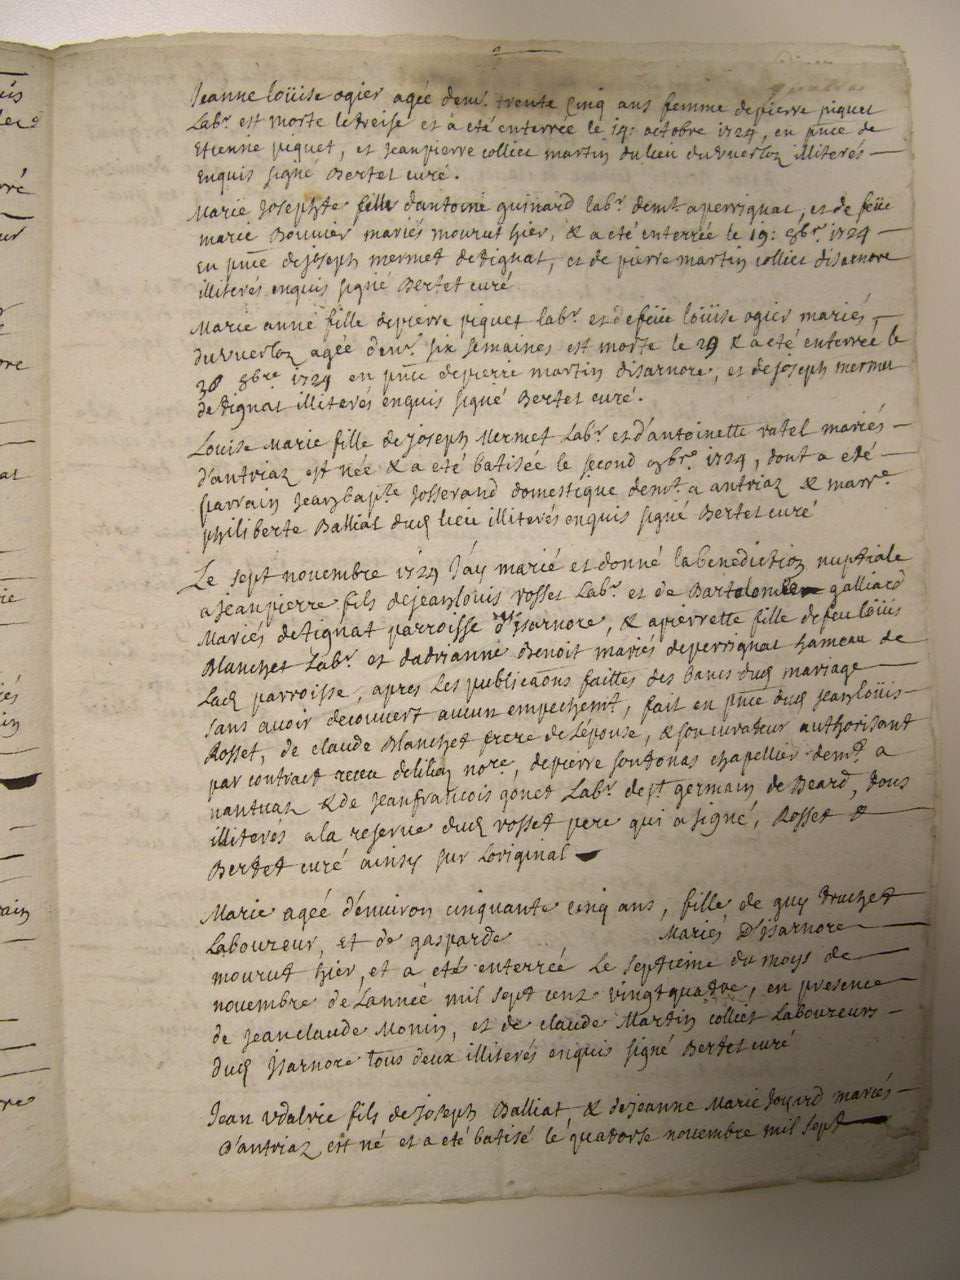 Jeanne loüise ogier agée denv.ʳ trente cinq ans femme de pierre piquet
Lab.ʳ est morte le treise et à eté enterrée le 14: octobre 1724, en pñce de
Etienne piquet, et Jean pierre colliet martin du lieu du vuerloz illiterés
enquis signé Bertet curé.
Marie Josephte fille d'antoine guinard lab.ʳ dem.ᵗ a perrignat, et de feüe
marie Bouvier mariés mourut hier, & a eté enterrée le 19: 8bre. 1724
en pñce de joseph mermet de tignat, et de pierre martin colliet disarnore
illiterés enquis signé Bertet curé
Marie anne fille de pierre piquet lab.ʳ et de feüe loüise ogier mariés,
du vuerloz agée denv.ʳ six semaines est morte le 29 & a eté enterrée le
30 8bre 1724 en pñce de pierre martin disarnore, et de joseph mermet
de tignat illiterés enquis signé Bertet curé.
Louise Marie fille de joseph Mermet Lab.ʳ et d'antoinette ratel mariés
d'antriaz est née & a eté batisée le second 9bre. 1724, dont a eté
parrain Jean bap.te Josserand domestique dem.ᵗ a antriaz & marr.e
philiberte Balliat dud lieu illiterés enquis signé Bertet curé
Le sept novembre 1724 J'ay marié et donné la benediction nuptiale
a jean pierre fils de jean louis rosset Lab.ʳ et de Bartolomée galliard
Mariés de tignat parroisse d'Isarnore, & a pierrette fille de feu loüis
Blanchet Lab.ʳ et d'adrianne Benoit mariés de perrignat hameau de
Lad parroisse, apres les publicaõns faittes des bancs dud mariage
sans avoir decouvert aucun empechem̃t, fait en pñce dud jean loüis
Rosset, de claude Blanchet frere de Lépouse, & son curateur authorisant
par contract receu de lilia nore, de pierre sontonas chapellier dem.ᵗ a
nantuaz & de jean francois gonet Lab.ʳ de st germain de Beard, tous
illiteres a la reserve dud rosset pere qui a signé, Rosset &
Bertet curé ainsy sur Loriginal
Marie agée d'environ cinquante cinq ans, fille de guy truchet
Laboureur, et de gasparde Mariés D'isarnore
mourut hier, et a eté enterrée Le septieme du moys de
novembre de Lannée mil sept cent vingt quatre, en presence
de jean claude Monin, et de claude Martin colliet Laboureurs
dud Isarnore tous deux illiterés enquis signé Bertet curé
Jean vdalric fils de joseph Balliat & de jeanne Marie Joyard mariés
D'antriaz est né et a eté batisé le quatorse novembre mil sept